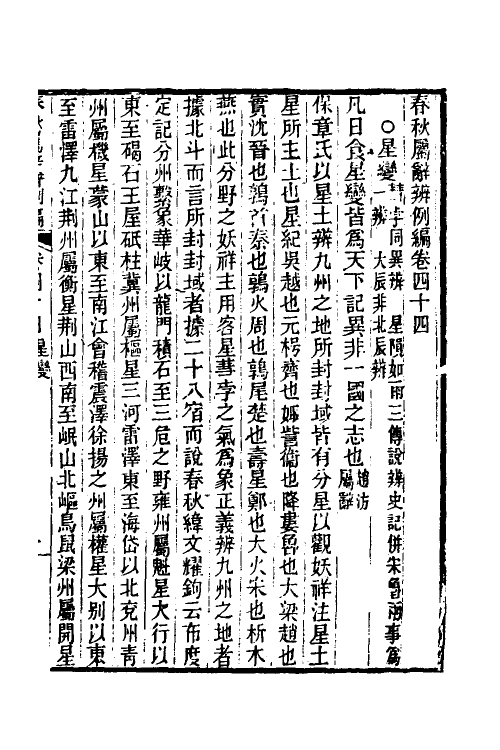 春秋屬辭辨例編卷四十四
○星變 彗孛同異辨 星隕如雨三傳說辨史記併宋魯兩事爲
一辨 大辰非北辰辨
凡日食星變皆爲天下記異非一國之志也 趙汸屬辭
保章氏以星土辨九州之地所封封域皆有分星以觀妖祥注星土
星所主土也星紀吳越也元枵齊也娵訾衞也降婁魯也大梁趙也
實沈晉也鶉首秦也鶉火周也鶉尾楚也壽星鄭也大火宋也析木
燕也此分野之妖祥主用客星彗孛之氣爲象正義辨九州之地者
據北斗而言所封封域者據二十八宿而說春秋緯文耀鉤云布度
定記分州繫象華岐以龍門積石至三危之野雍州屬魁星大行以
東至碣石王屋砥柱冀州屬樞星三河雷澤東至海岱以北兗州青
州屬機星蒙山以東至南江會稽震澤徐揚之州屬權星大別以東
至雷澤九江荆州屬衡星荆山西南至岷山北嶇鳥鼠梁州屬開星
星變